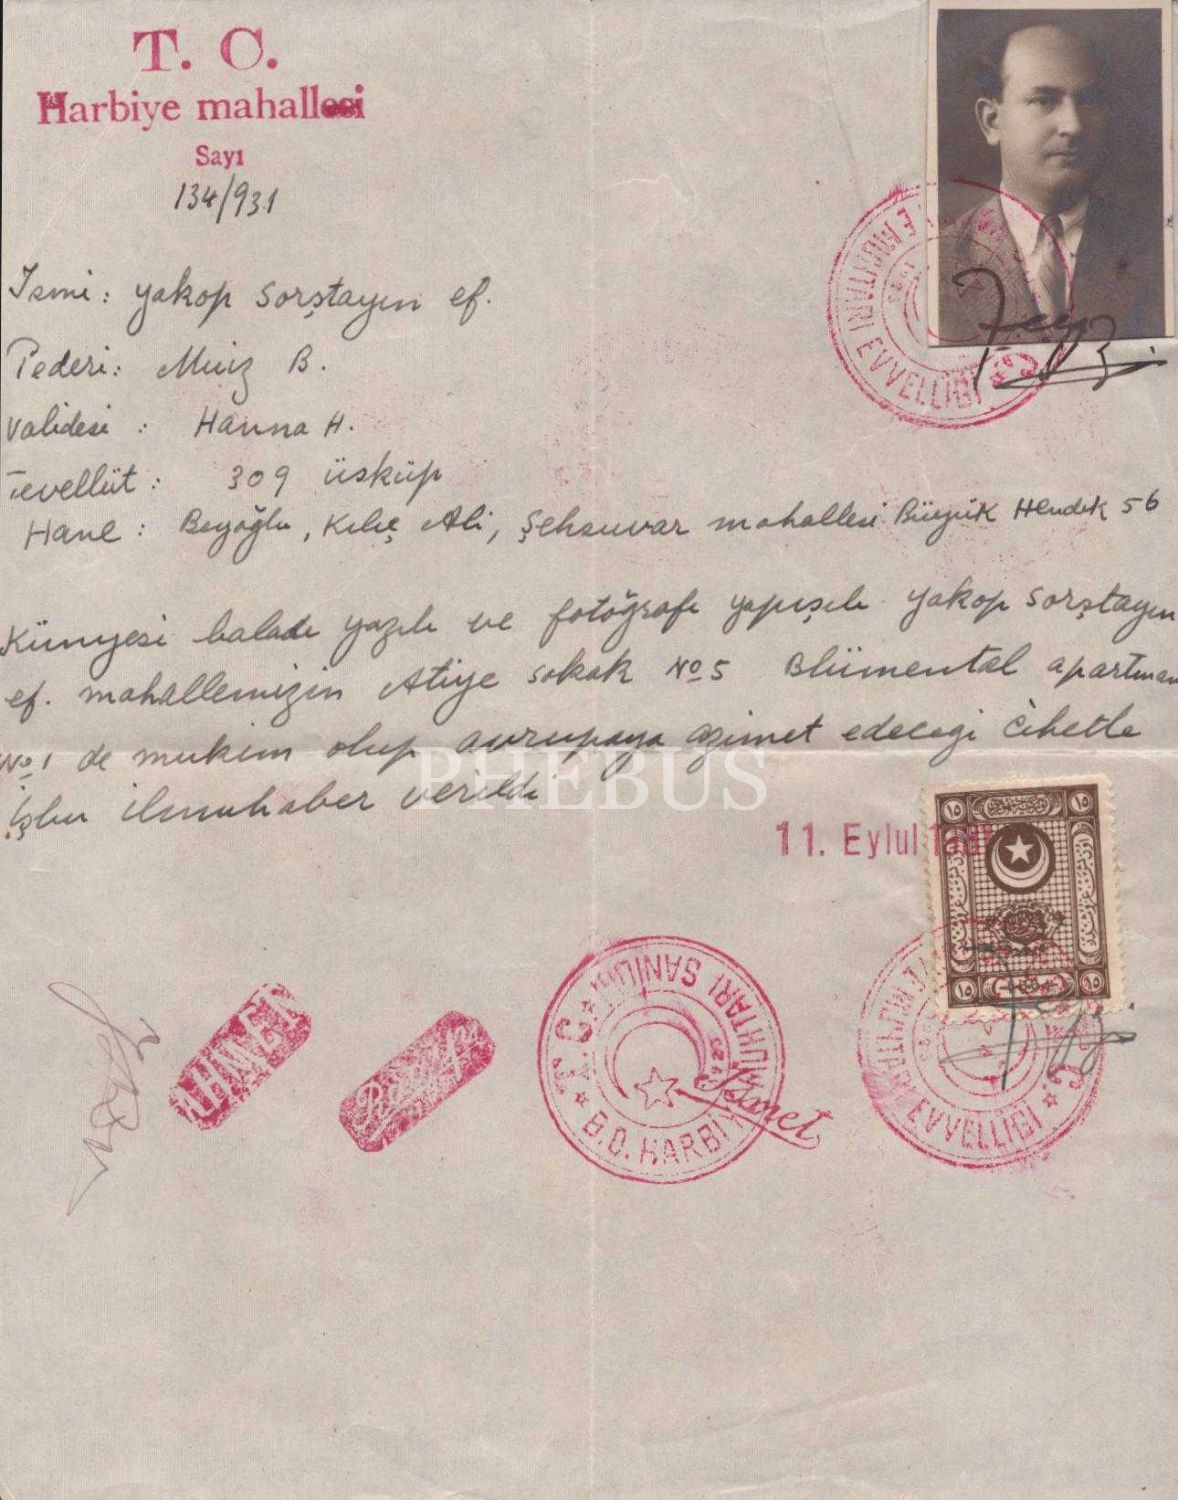 T. C.
Harbiye mahallesi
Sayı
134/931
İsmi: Yakop Sorştayın ef.
Pederi: Moiz B.
Validesi : Hanna H.
Tevellüt : 309 Üsküp
Hane : Beyoğlu, Kılıç Ali, Şehsuvar mahallesi Büyük Hendek 56
Künyesi balada yazılı ve fotoğrafı yapışılı Yakop Sorştayın
ef. mahallemizin Atiye sokak No 5 Blümental apartman
No 1 de mukim olup avrupaya azimet edeceği cihetle
işbu ilmuhaber verildi
PHEBUS
11. Eylul
١٥ ١٥
١٥ ١٥
MUHTARI EVVELLİĞİ
T.C.
B.O. HARBİYE MUHTARI SANİLİĞİ
İsmet
MUHTARI EVVELLİĞİ